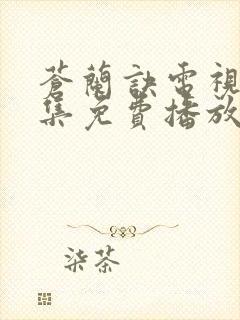 蒼蘭訣電視
集免費播放
柒茶